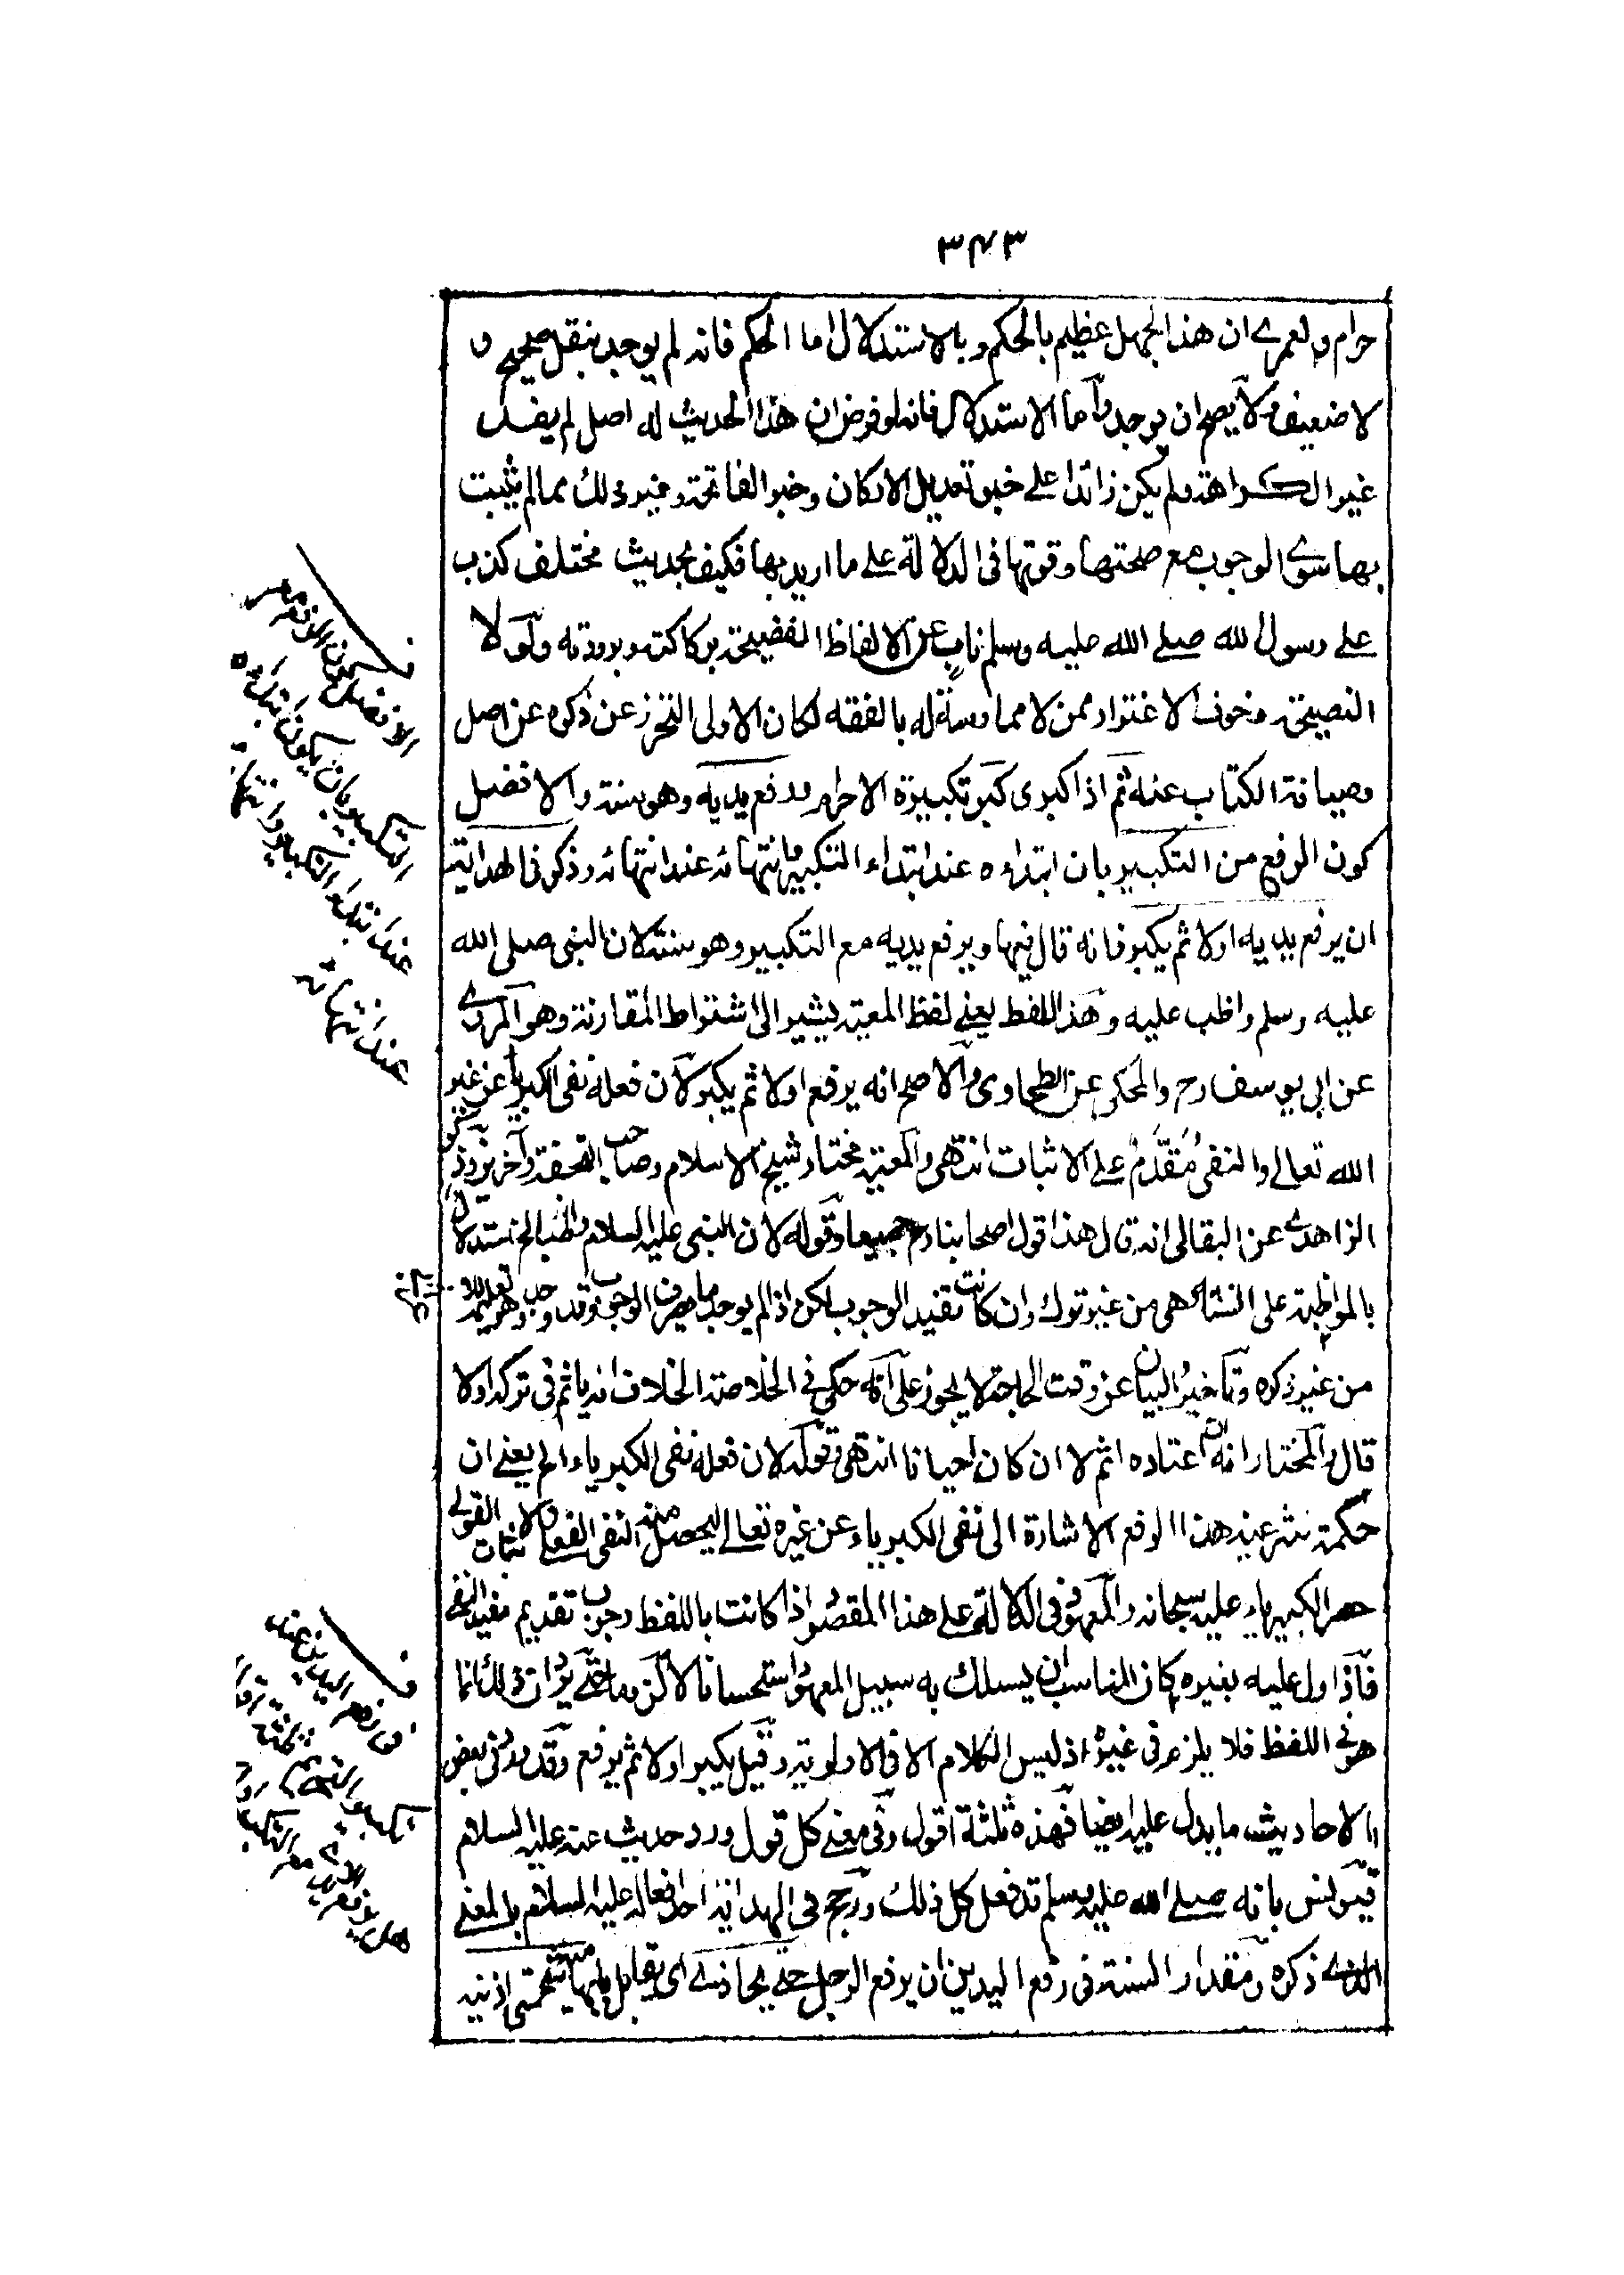 ٣٤٣
حرام ولعمرے ان هذا لجهل عظيم بالحكم وبالاستدلال اما الحكم فانه لم يوجد بنقل صحيح و
لا ضعيف ولا يصح ان يوجد واما الاستدلال فانه لو فرض ان هذا الحديث له اصل لم يفد
غير الكراهة ولم يكن زائدا على خبر تعديل الاركان وخبر الفاتحة وغير ذلك مما لم يثبت
بها سوى الوجوب مع صحتها وقوتها فى الدلالة على ما اريد بها فكيف بحديث مختلف كذب
على رسول الله صلى الله عليه وسلم ناب عن الالفاظ الفصيحة بركاكته وبرودته ولولا
النصيحة وخوف الاغترار ممن لا ممارسة له بالفقه لكان الاولى التحرز عن ذكره عن اصل
وصيانة الكتاب عنه ثم اذا كبر اى كبر تكبيرة الاحرام ورفع يديه وهو سنة والافضل
كون الرفع من التكبير بان ابتداءه عند ابتداء التكبير وانتهائه عند انتهائه وذكر فى الهداية
ان يرفع يديه اولا ثم يكبر فانه قال فيها ويرفع يديه مع التكبير وهو سنة لان النبى صلى الله
عليه وسلم واظب عليه وهذا اللفظ يعنے لفظ المعية يشير الى اشتراط المقارنة وهو المروى
عن ابى يوسف رح والمحكى عن الطحاوى والاصح انه يرفع اولا ثم يكبر لان فعله نفى الكبرياء عن غير
الله تعالى والنفى مُقَدَّمٌ على الاثبات انتهى والمعية مختار شيخ الاسلام وصاحب التحفة وآخرين وذكر
الزاهدى عن البقالى انه قال هذا قول اصحابنا رح جميعا وقوله لان النبى عليه السلام واظب الخ استدلال
بالمواظبة على السنة هى من غير ترك وان كانت تفيد الوجوب لكن اذا لم يوجد ما يصرف الوجوب وقد وجد وهو تعليمه
من غير ذكره وتأخيرُ البيان عن وقت الحاجة لا يجوز على انه حكى فى الخلاصة الخلاف انه ياثم فى تركه اولا
قال والمختار انه ان اعتاده اثم لا ان كان احيانا انتهى وقوله لان فعله نفى الكبرياء الخ يعنے ان
حكمة شرعية هذا الرفع الاشارة الى نفى الكبرياء عن غيره تعالى ليحصل منه النفى الفعلى والاثبات القولى
حصر الكبرياء عليه سبحانه والمعهود فى الدلالة على هذا المقصود اذا كانت باللفظ وجوب تقديم مفيد النفى
فاذا دل عليه بغيره كان المناسب ان يسلك به سبيل المعهود استحسانا لا لزوما حتى يرد ان ذلك انما
هو فى اللفظ فلا يلزم فى غيره اذ ليس الكلام الا فى الاولوية وقيل يكبر اولا ثم يرفع وقد ورد فى بعض
الاحاديث ما يدل عليه ايضا فهذه ثلثة اقول وفى معنے كل قول ورد حديث عنه عليه السلام
فيونس بانه صلى الله عليه وسلم قد فعل كل ذلك ورجح فى الهداية احد افعاله عليه السلام بالمعنے
الذى ذكره ومقدار السنة فى رفع اليدين ان يرفع الرجل حتى يحاذى اى يقابل بابهاميه شحمتى اذنيه
الافضل كون الرفع مع
التكبير بان يكون ابتداءه
عند ابتداء التكبير وانتهائه
عند انتهائه
فى رفع اليدين عند
تكبير
هل يرفع يديه مع التكبير